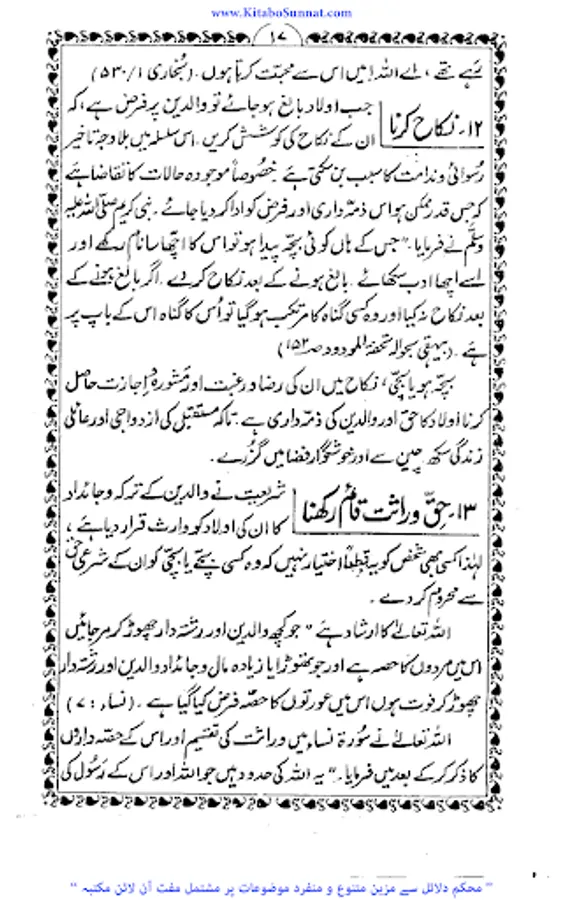 www.KitaboSunnat.com
۱۷
رہے تھے، اے اللہ! میں اس سے محبت کرتا ہوں۔ (بخاری ۵۳۰/۱)
۱۲۔ نکاح کرنا
جب اولاد بالغ ہو جائے تو والدین پر فرض ہے، کہ
ان کے نکاح کی کوشش کریں۔ اس سلسلہ میں بلا وجہ تاخیر
رسوائی و ندامت کا سبب بن سکتی ہے۔ خصوصاً موجودہ حالات کا تقاضا ہے
کہ جس قدر ممکن ہو اس ذمہ داری اور فرض کو ادا کر دیا جائے۔ نبی کریم صلی اللہ علیہ
وسلم نے فرمایا۔ "جس کے ہاں کوئی بچہ پیدا ہو تو اس کا اچھا سا نام رکھے اور
اسے اچھا ادب سکھائے۔ بالغ ہونے کے بعد نکاح کر دے۔ اگر بالغ ہونے کے
بعد نکاح نہ کیا اور وہ کسی گناہ کا مرتکب ہو گیا تو اُس کا گناہ اس کے باپ پر
ہے۔ (بیہقی بحوالہ تحفۃ المودود صـ ۱۵۲)
بچہ ہو یا بچی، نکاح میں ان کی رضا و رغبت اور مشورہ و اجازت حاصل
کرنا اولاد کا حق اور والدین کی ذمہ داری ہے۔ تاکہ مستقبل کی ازدواجی اور عائلی
زندگی سکھ چین سے اور خوشگوار فضا میں گزرے۔
۱۳۔ حقِ وراثت قائم رکھنا
شریعت نے والدین کے ترکہ و جائداد
کا ان کی اولاد کو وارث قرار دیا ہے،
لہٰذا کسی بھی شخص کو یہ قطعاً اختیار نہیں کہ وہ کسی بچے یا بچی کو ان کے شرعی حق
سے محروم کر دے۔
اللہ تعالیٰ کا ارشاد ہے "جو کچھ والدین اور رشتہ دار چھوڑ کر مر جائیں
اس میں مردوں کا حصہ ہے اور جو تھوڑا یا زیادہ مال و جائداد والدین اور رشتہ دار
چھوڑ کر فوت ہوں اس میں عورتوں کا حصہ فرض کیا گیا ہے۔ (نساء: ۷)
اللہ تعالیٰ نے سورۃ نساء میں وراثت کی تقسیم اور اس کے حصہ داروں
کا ذکر کر کے بعد میں فرمایا۔ "یہ اللہ کی حدود ہیں جو اللہ اور اس کے رسول کی
" محکم دلائل سے مزین متنوع و منفرد موضوعات پر مشتمل مفت آن لائن مکتبہ "